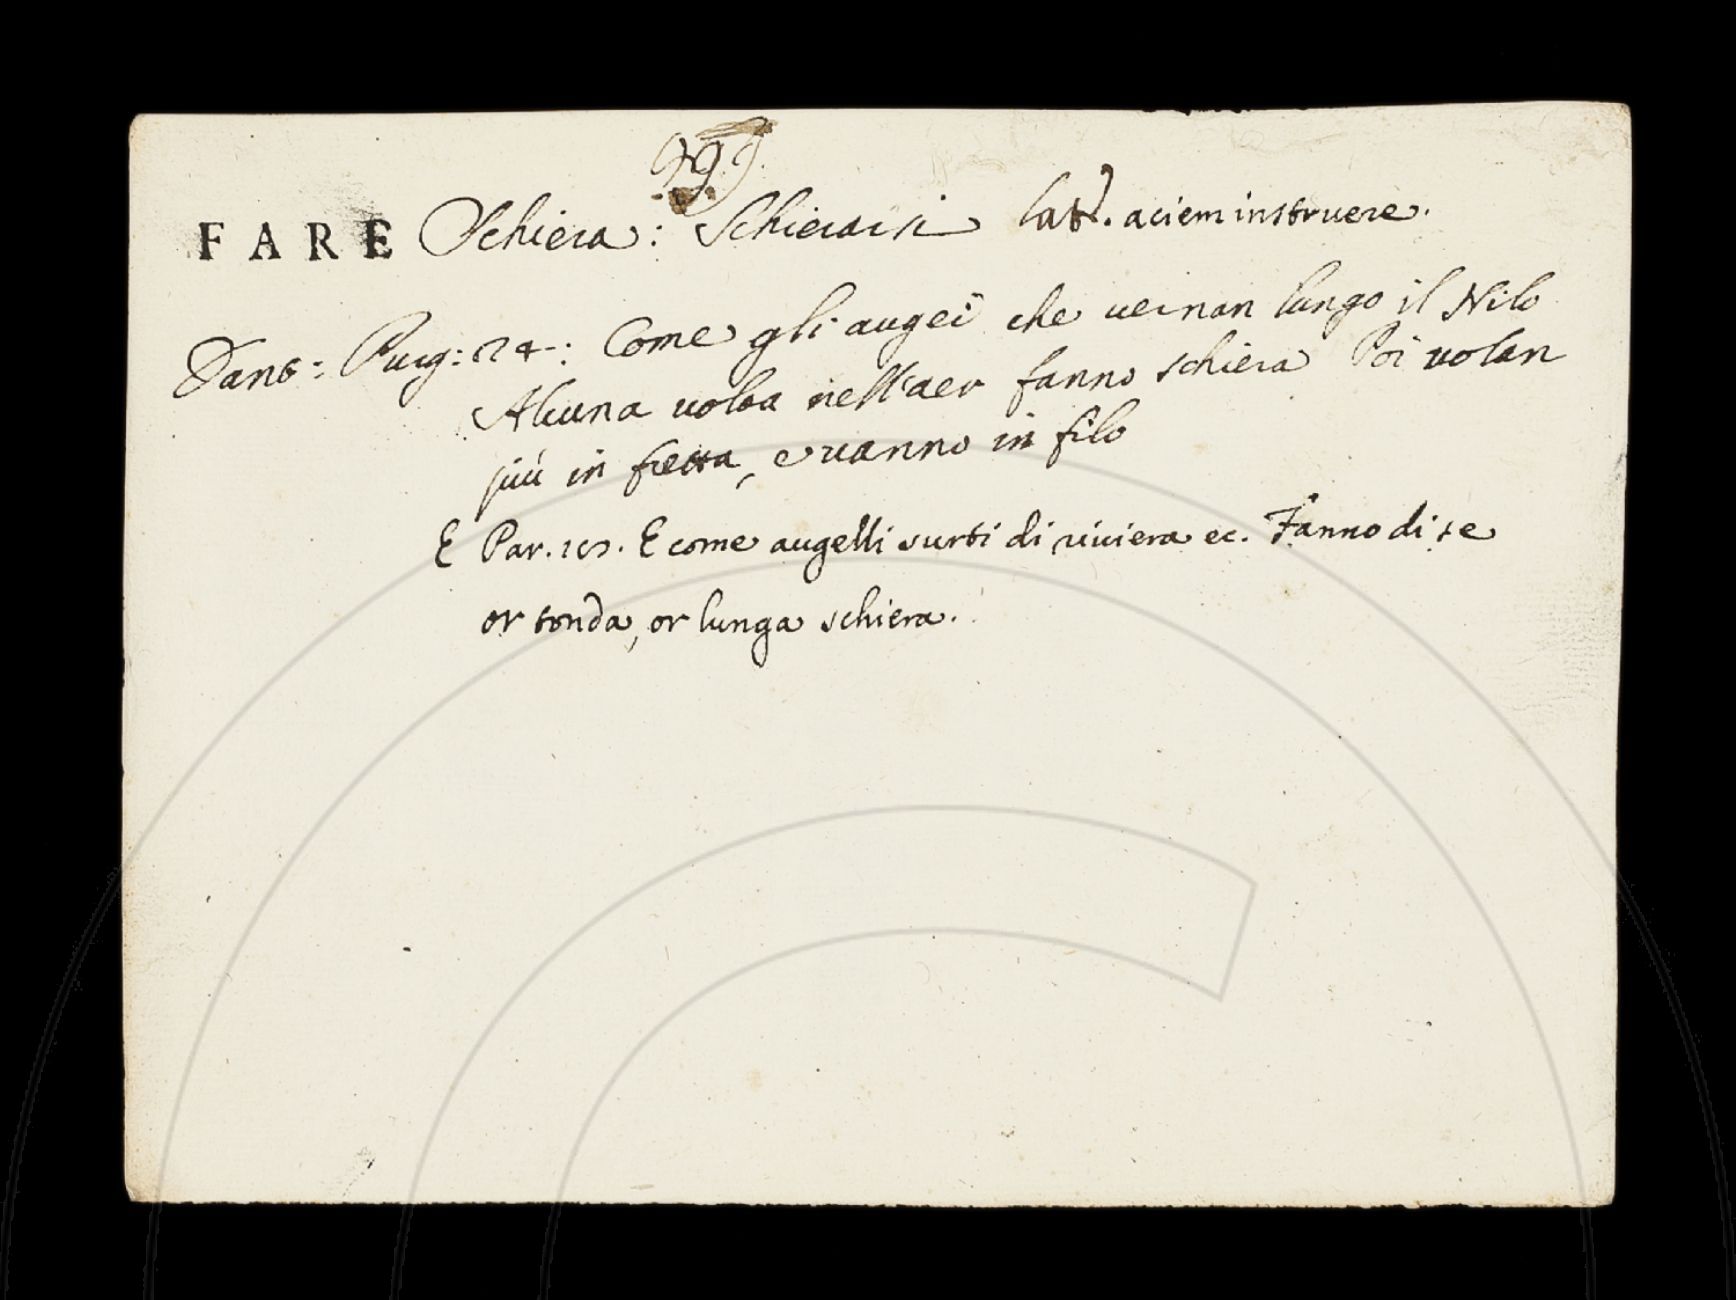 FARE Schiera: Schierarsi latt. aciem instruere.
Dant: Purg: 24: Come gli augei che vernan lungo il Nilo
Alcuna volta nell'aer fanno schiera Poi volan
più in fretta, e vanno in filo
E Par. 18. E come augelli surti di riviera ec. Fanno di se
or tonda, or lunga schiera.